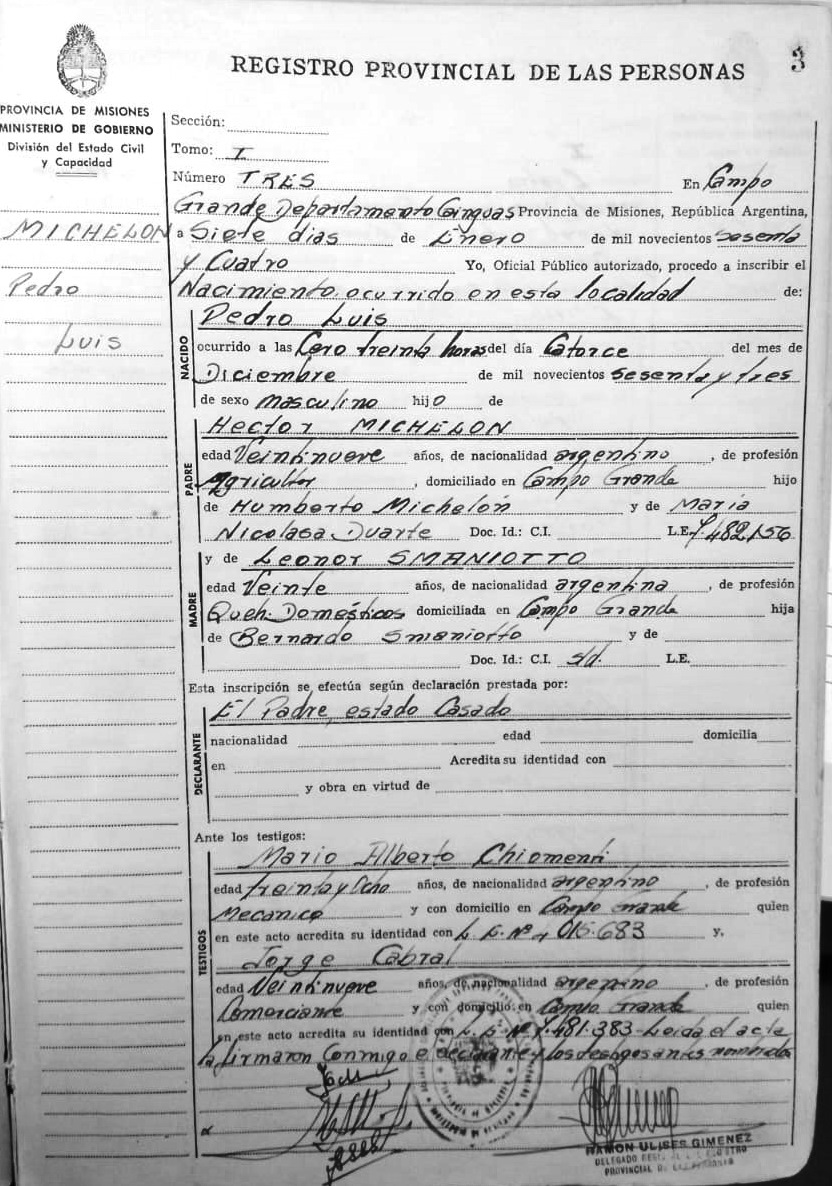 REGISTRO PROVINCIAL DE LAS PERSONAS
3
PROVINCIA DE MISIONES
MINISTERIO DE GOBIERNO
División del Estado Civil
y Capacidad
MICHELON
Pedro
Luis
Sección:
Tomo: I
Número TRES En Campo
Grande Departamento Cainguas Provincia de Misiones, República Argentina,
a Siete días de Enero de mil novecientos sesenta
y Cuatro Yo, Oficial Público autorizado, procedo a inscribir el
Nacimiento ocurrido en esta localidad de:
NACIDO
Pedro Luis
ocurrido a las Cero treinta horas del día Catorce del mes de
Diciembre de mil novecientos sesenta y tres
de sexo masculino hijo de
PADRE
Hector MICHELON
edad Veintinueve años, de nacionalidad argentino, de profesión
Agricultor, domiciliado en Campo Grande hijo
de Humberto Michelón y de María
Nicolasa Duarte Doc. Id.: C.I. L.E. 7.482.156
MADRE
y de Leonor SMANIOTTO
edad Veinte años, de nacionalidad argentina, de profesión
Queh. Domésticos domiciliada en Campo Grande hija
de Bernardo Smaniotto y de
Doc. Id.: C.I. s/d. L.E.
Esta inscripción se efectúa según declaración prestada por:
DECLARANTE
El Padre, estado Casado
nacionalidad edad domicilia
en Acredita su identidad con
y obra en virtud de
Ante los testigos:
TESTIGOS
Mario Alberto Chiomenti
edad treinta y Ocho años, de nacionalidad argentino, de profesión
Mecánico y con domicilio en Campo Grande quien
en este acto acredita su identidad con L. E. Nº 4 015.683 y,
Jorge Cabral
edad Veintinueve años, de nacionalidad argentino, de profesión
Comerciante y con domicilio en Campo Grande quien
en este acto acredita su identidad con L. E. Nº 7.481.383 - Leida el acta
la firmaron conmigo el declarante y los testigos antes nombrados
RAMON ULISES GIMENEZ
DELEGADO REGISTRO
PROVINCIAL DE LAS PERSONAS